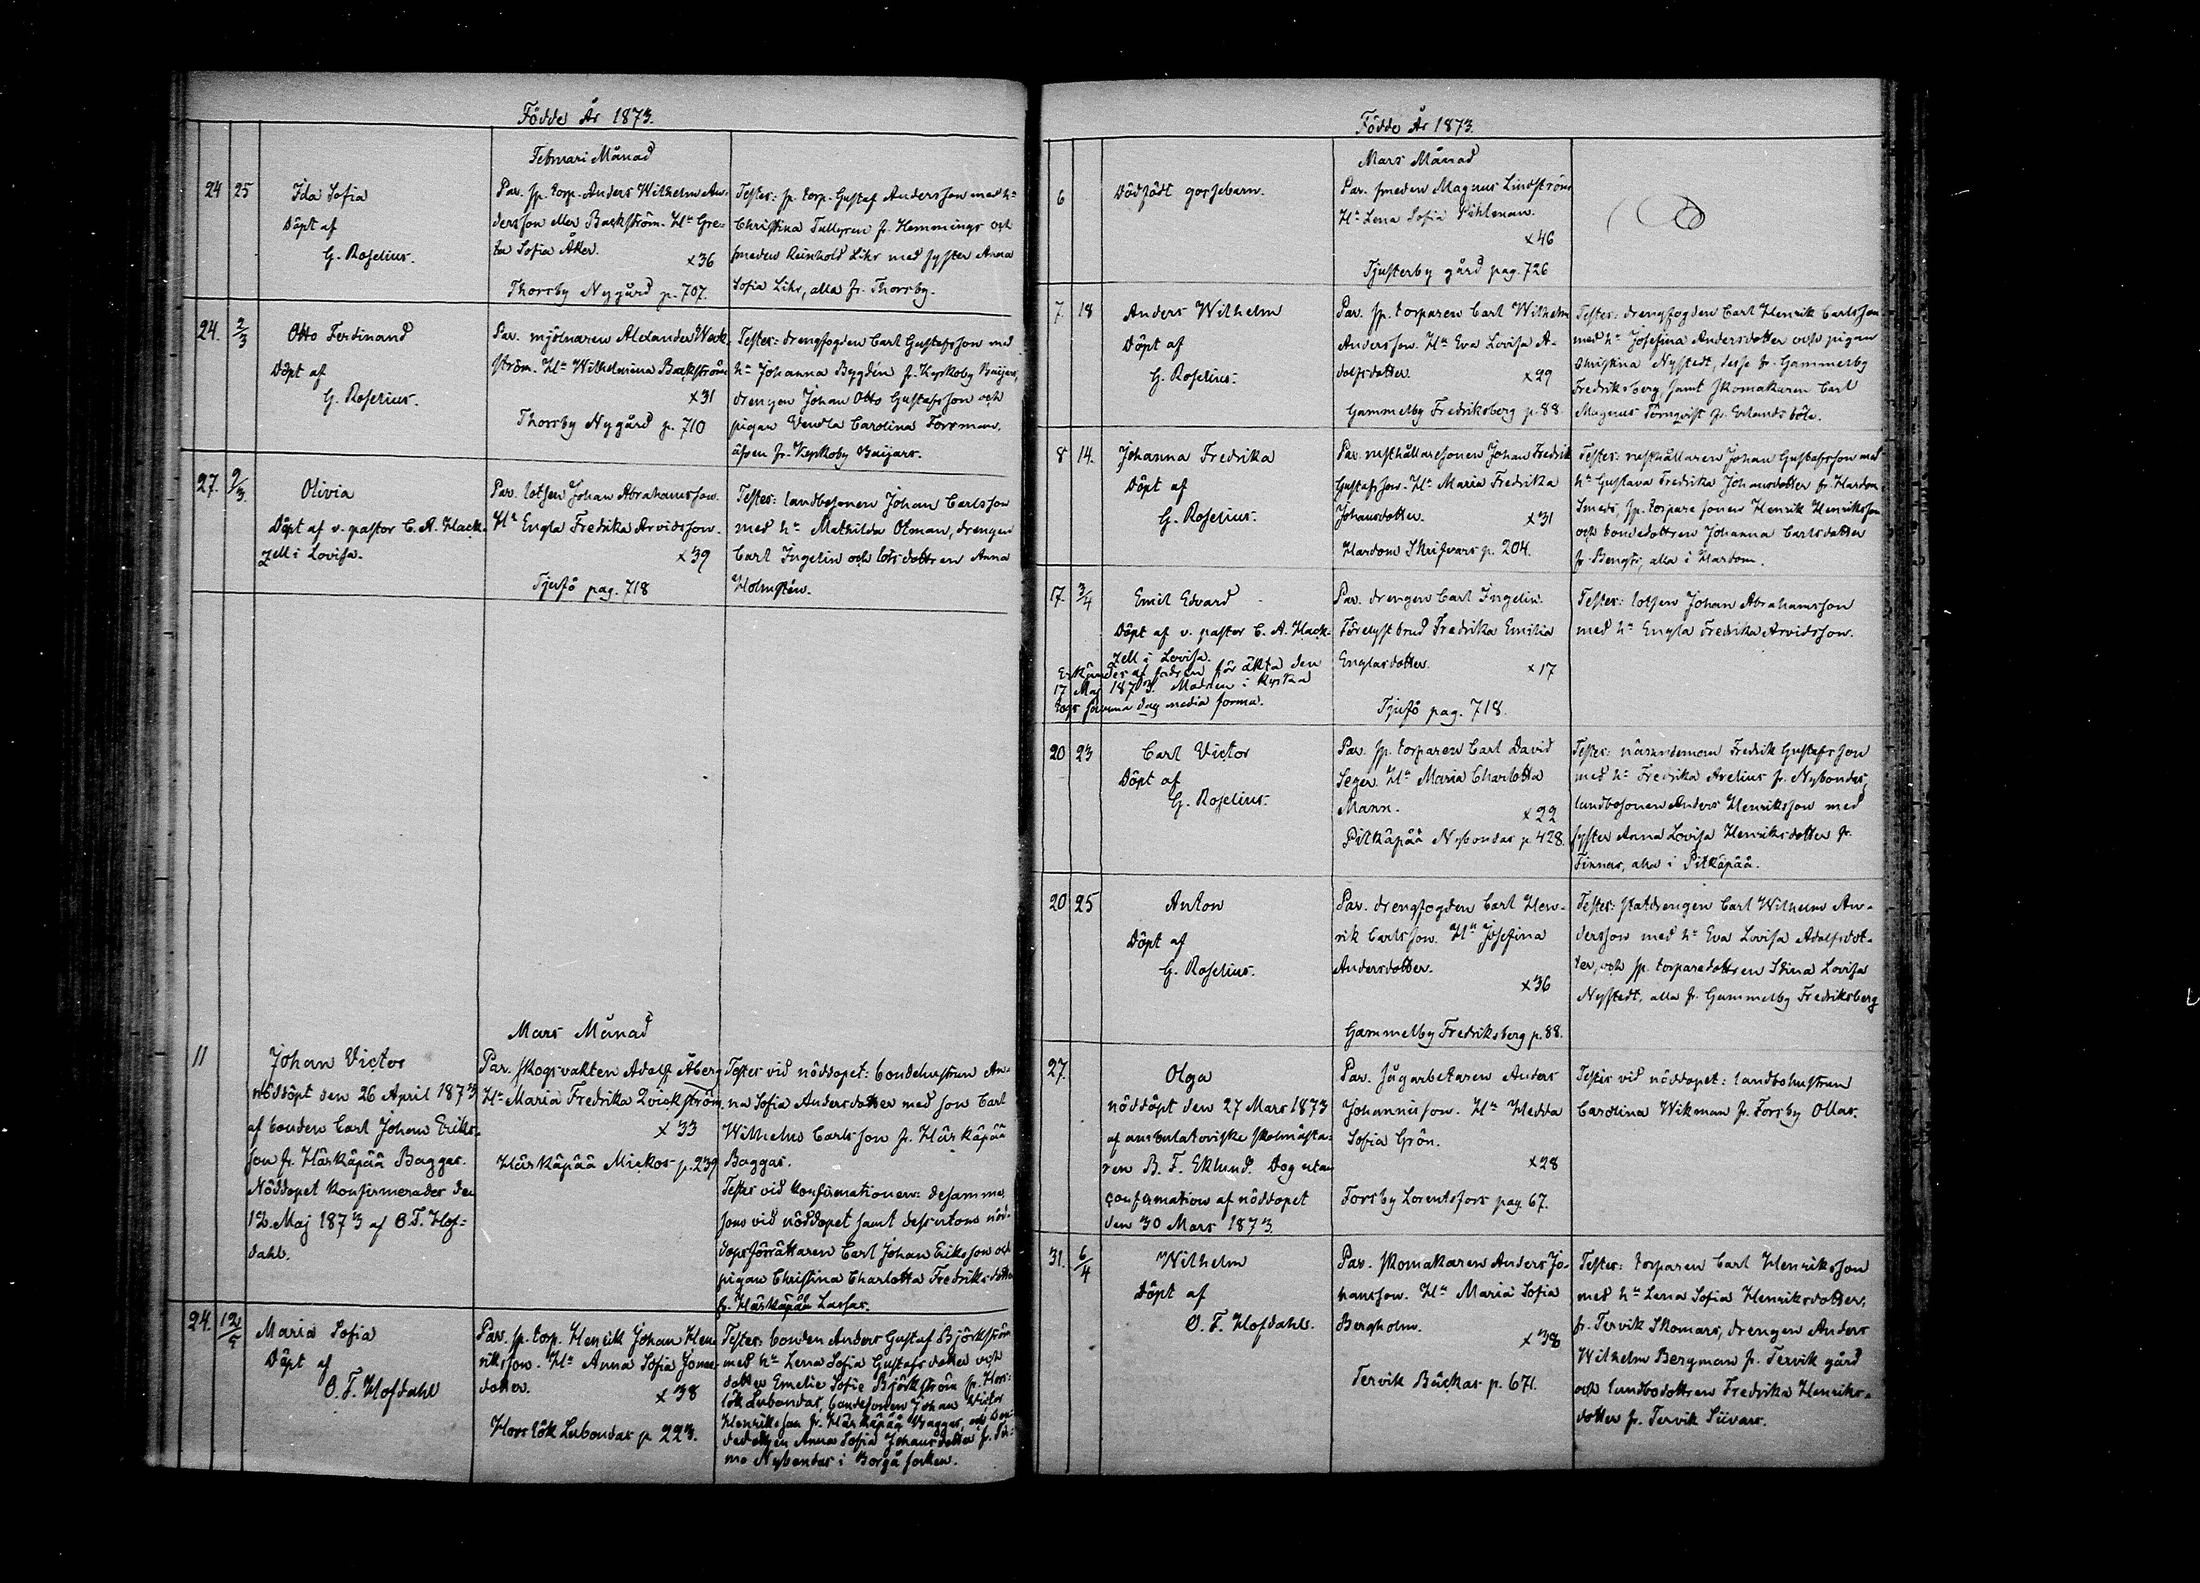 Födde År 1873.
Februari Månad
24 25
Ida Sofia
Döpt af
G. Roselius.
Par. sp. torp. Anders Wilhelm An-
dersson eller Backström. Hu Gre-
ta Sofia Åker.
x 36
Thorsby Nygård p. 707.
Testes: sp. torp. Gustaf Andersson med hu
Christina Tallgren fr. Hemmings och
smeden Reinhold Lihr med syster Anna
Sofia Lihr, alla fr. Thorsby.
24. 2/3
Otto Ferdinand
Döpt af
G. Roselius.
Par. mjölnaren Alexander Wack-
ström. Hu Wilhelmina Backström
x 31
Thorsby Nygård p. 710
Testes: drengfogden Carl Gustafsson med
hu Johanna Bygdén fr. Kyrkoby Baijars,
drengen Johan Otto Gustafsson och
pigan Vendla Carolina Forsman,
äfven fr. Kyrkoby Baijars.
27. 9/3.
Olivia
Döpt af v. pastor C. A. Hack-
zell i Lovisa.
Par. lotsen Johan Abrahamsson.
Hu Engla Fredrika Arvidsson.
x 39
Tjusö pag. 718
Testes: landbosonen Johan Carlsson
med hu Mathilda Otman, drengen
Carl Ingelin och lotsdottren Anna
Holmstén.
Mars Månad
11
Johan Victor
nöddöpt den 26 April 1873
af bonden Carl Johan Eriks-
son fr. Härkäpää Baggas.
Nöddopet konfirmerades den
12 Maj 1873 af O. F. Hof-
dahl.
Par. skogsvakten Adolf Åberg
Hu Maria Fredrika Qvickström.
x 33
Härkäpää Mickos p. 239
Testes vid nöddopet: bondehustrun An-
na Sofia Andersdotter med son Carl
Wilhelm Carlsson fr. Härkäpää
Baggas.
Testes vid konfirmationen: desamma,
som vid nöddopet samt dessutom nöd-
dopsförrättaren Carl Johan Eriksson och
pigan Christina Charlotta Fredriksdotter
fr. Härkäpää Lassas.
24. 12/4
Maria Sofia
Döpt af
O. F. Hofdahl
Par. sp. torp. Henrik Johan Hen-
riksson. Hu Anna Sofia Jonas-
dotter.
x 38
Horslök Lubondas p. 223.
Testes: bonden Anders Gustaf Björkström
med hu Lena Sofia Gustafsdotter och
dotter Emelie Sofie Björkström fr. Hors-
lök Lubondas, bondesonen Johan Victor
Henriksson fr. Härkäpää Baggas, och
Anna Sofia Johansdotter fr.
Nybondas i Borgå socken.
Födde År 1873.
Mars Månad
6
Dödfödt gossebarn.
Par. smeden Magnus Lindström
Hu Lena Sofia Pihlman.
x 46
Tjusterby gård pag. 726
7. 18
Anders Wilhelm
Döpt af
G. Roselius.
Par. sp. torparen Carl Wilhelm
Andersson. Hu Eva Lovisa A-
dolfsdotter.
x 29
Gammelby Fredriksberg p. 88
Testes: drengfogden Carl Henrik Carlsson
med hu Josefina Andersdotter och pigan
Christina Nystedt, desse fr. Gammelby
Fredriksberg, samt skomakaren Carl
Magnus Törnqvist fr. Erlandsböle.
8 14.
Johanna Fredrika
Döpt af
G. Roselius.
Par. rusthållaresonen Johan Fredrik
Gustafsson. Hu Maria Fredrika
Johansdotter.
x 31
Hardom Skrifvars p. 204.
Testes: rusthållaren Johan Gustafsson med
hu Gustava Fredrika Johansdotter fr. Hardom
Smeds, sp. torparesonen Henrik Henriksson
och bondedottren Johanna Carlsdotter
fr. Bengts, alla i Hardom.
17. 3/4
Emil Edvard
Döpt af v. pastor C. A. Hack-
zell i Lovisa.
Erkändes af fadren för äkta den
17 Maj 1873. Modren i kyrka
togs samma dag media forma.
Par. drengen Carl Ingelin.
Förelyst brud Fredrika Emilia
Englasdotter.
x 17
Tjusö pag. 718.
Testes: lotsen Johan Abrahamsson
med hu Engla Fredrika Arvidsson.
20 23
Carl Victor
Döpt af
G. Roselius.
Par. sp. torparen Carl David
Seger. Hu Maria Charlotta
Mann.
x 22
Pitkäpää Nybondas p. 428.
Testes: nämndeman Fredrik Gustafsson
med hu Fredrika Avelius fr. Nybondas,
landbosonen Anders Henriksson med
syster Anna Lovisa Henriksdotter fr.
Finnas, alla i Pitkäpää.
20 25
Anton
Döpt af
G. Roselius.
Par. drengfogden Carl Hen-
rik Carlsson. Hu Josefina
Andersdotter.
x 36
Gammelby Fredriksberg p. 88.
Testes: statdrengen Carl Wilhelm An-
dersson med hu Eva Lovisa Adolfsdot-
ter, och sp. torparedottren Stina Lovisa
Nystedt, alla fr. Gammelby Fredriksberg
27.
Olga
nöddöpt den 27 Mars 1873
af ambulatoriske skolmästa-
ren B. F. Eklund. Dog utan
confirmation af nöddopet
den 30 Mars 1873.
Par. sågarbetaren Anders
Johannisson. Hu Hedda
Sofia Grön.
x 28
Forsby Lorentsfors pag. 67.
Testis vid nöddopet: landbohustrun
Carolina Wikman fr. Forsby Ollas.
31. 6/4
Wilhelm
Döpt af
O. F. Hofdahl.
Par. skomakaren Anders Jo-
hansson. Hu Maria Sofia
Bergholm.
x 38
Tervik Backas p. 671.
Testes: torparen Carl Henriksson
med hu Lena Sofia Henriksdotter,
fr. Tervik Skomars, drengen Anders
Wilhelm Bergman fr. Tervik gård
och landbodottren Fredrika Henriks-
dotter fr. Tervik Siivars.